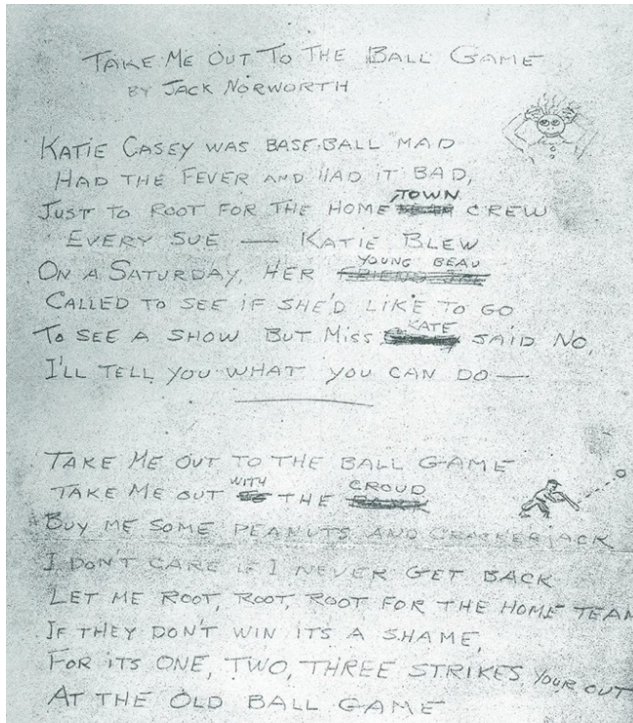 TAKE ME OUT TO THE BALL GAME
BY JACK NORWORTH
KATIE CASEY WAS BASE BALL MAD
HAD THE FEVER AND HAD IT BAD,
JUST TO ROOT FOR THE HOME TOWN CREW
EVERY SUE — KATIE BLEW
ON A SATURDAY, HER YOUNG BEAU
CALLED TO SEE IF SHE'D LIKE TO GO
TO SEE A SHOW BUT MISS KATE SAID NO,
I'LL TELL YOU WHAT YOU CAN DO —
TAKE ME OUT TO THE BALL GAME
TAKE ME OUT WITH THE CROUD
BUY ME SOME PEANUTS AND CRACKERJACK
I DON'T CARE IF I NEVER GET BACK
LET ME ROOT, ROOT, ROOT FOR THE HOME TEAM
IF THEY DON'T WIN ITS A SHAME,
FOR ITS ONE, TWO, THREE STRIKES YOUR OUT
AT THE OLD BALL GAME